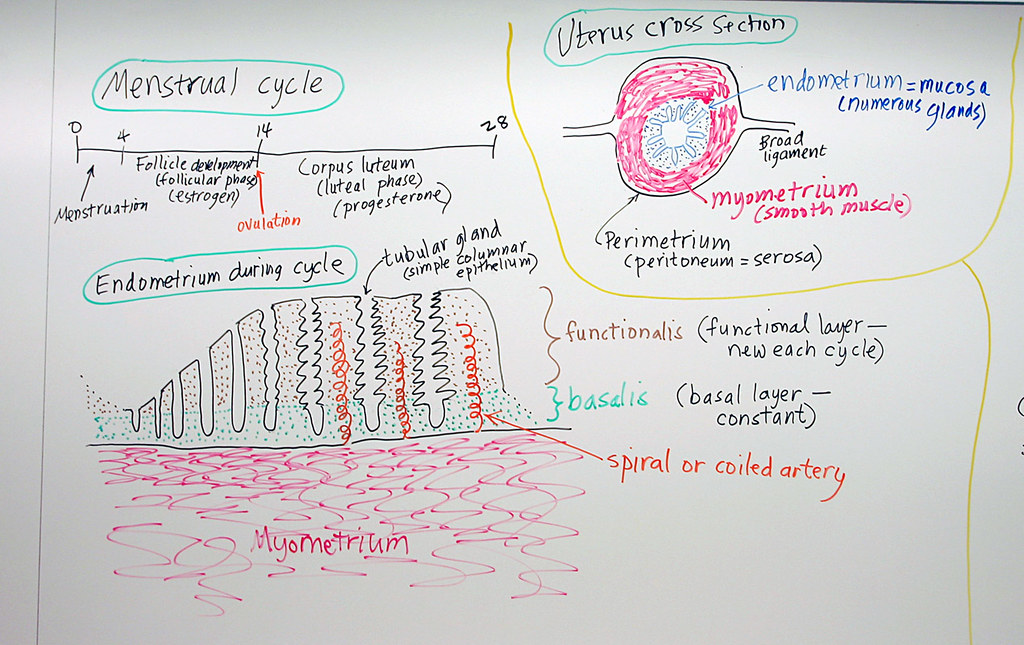 Menstrual cycle
0
4
14
28
Menstruation
Follicle development
(follicular phase)
(estrogen)
ovulation
Corpus luteum
(luteal phase)
(progesterone)
Uterus cross section
endometrium = mucosa
(numerous glands)
Broad
ligament
myometrium
(smooth muscle)
Perimetrium
(peritoneum = serosa)
Endometrium during cycle
tubular gland
(simple columnar
epithelium)
functionalis (functional layer —
new each cycle)
basalis (basal layer —
constant)
spiral or coiled artery
Myometrium